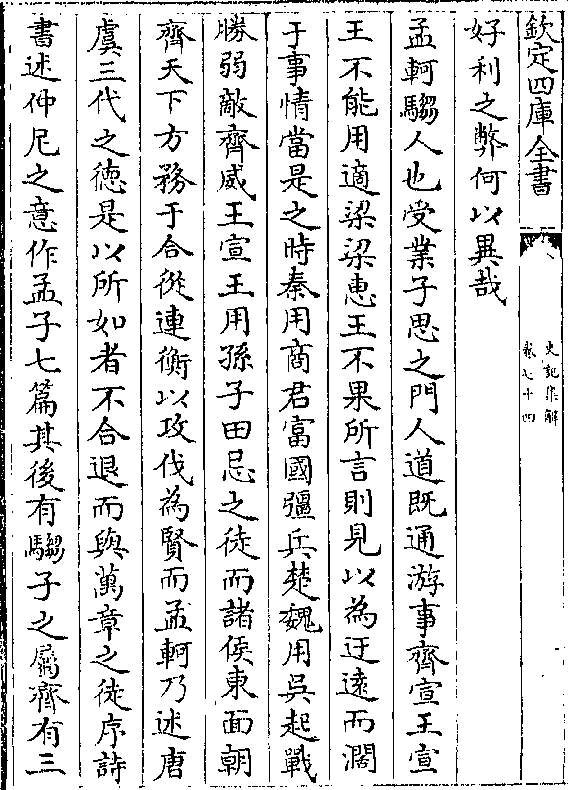 欽定四庫全書
史記集解
卷七十四
好利之弊何以異哉
孟軻騶人也受業子思之門人道既通游事齊宣王宣
王不能用適梁梁恵王不果所言則見以為迂遠而濶
于事情當是之時秦用商君富國彊兵楚魏用吳起戰
勝弱敵齊威王宣王用孫子田忌之徒而諸侯東面朝
齊天下方務于合從連衡以攻伐為賢而孟軻乃述唐
虞三代之徳是以所如者不合退而與萬章之徒序詩
書述仲尼之意作孟子七篇其後有騶子之屬齊有三